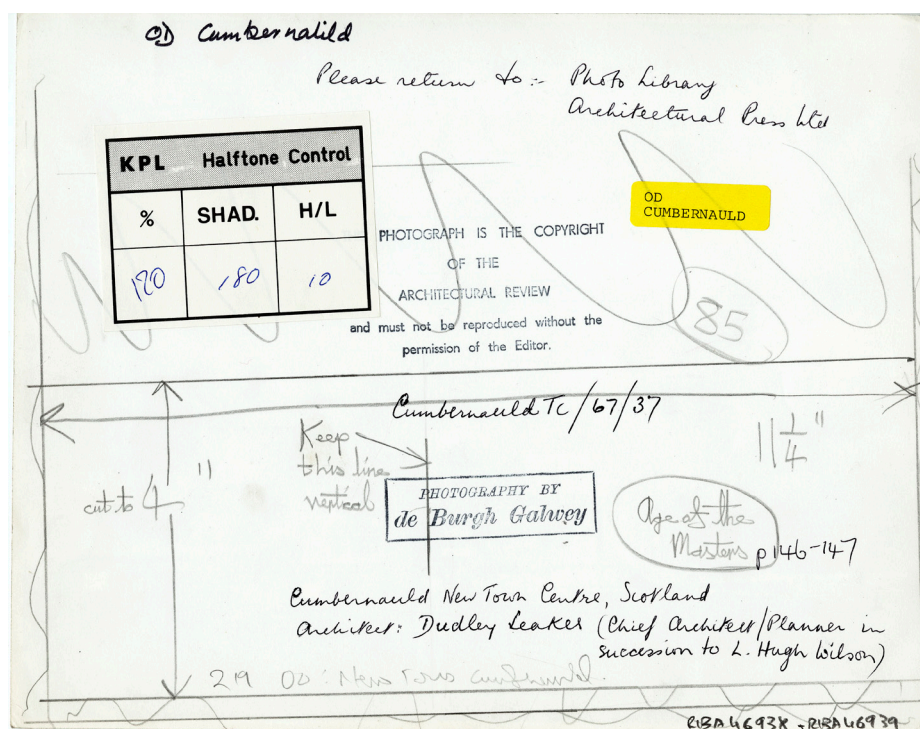 OD Cumbernalild
Please return to :- Photo Library
Architectural Press Ltd
KPL Halftone Control
% SHAD. H/L
120 180 10
OD
CUMBERNAULD
PHOTOGRAPH IS THE COPYRIGHT
OF THE
ARCHITECTURAL REVIEW
and must not be reproduced without the
permission of the Editor.
85
Cumbernauld TC/67/37
Keep
this line
vertical
11 1/4 "
cut to 4 "
PHOTOGRAPHY BY
de Burgh Galwey
Age of the
Masters p146-147
Cumbernauld New Town Centre, Scotland
Architect: Dudley Leaker (Chief Architect/Planner in
succession to L. Hugh Wilson)
219 OD: New Town
RIBA46938 - RIBA46939